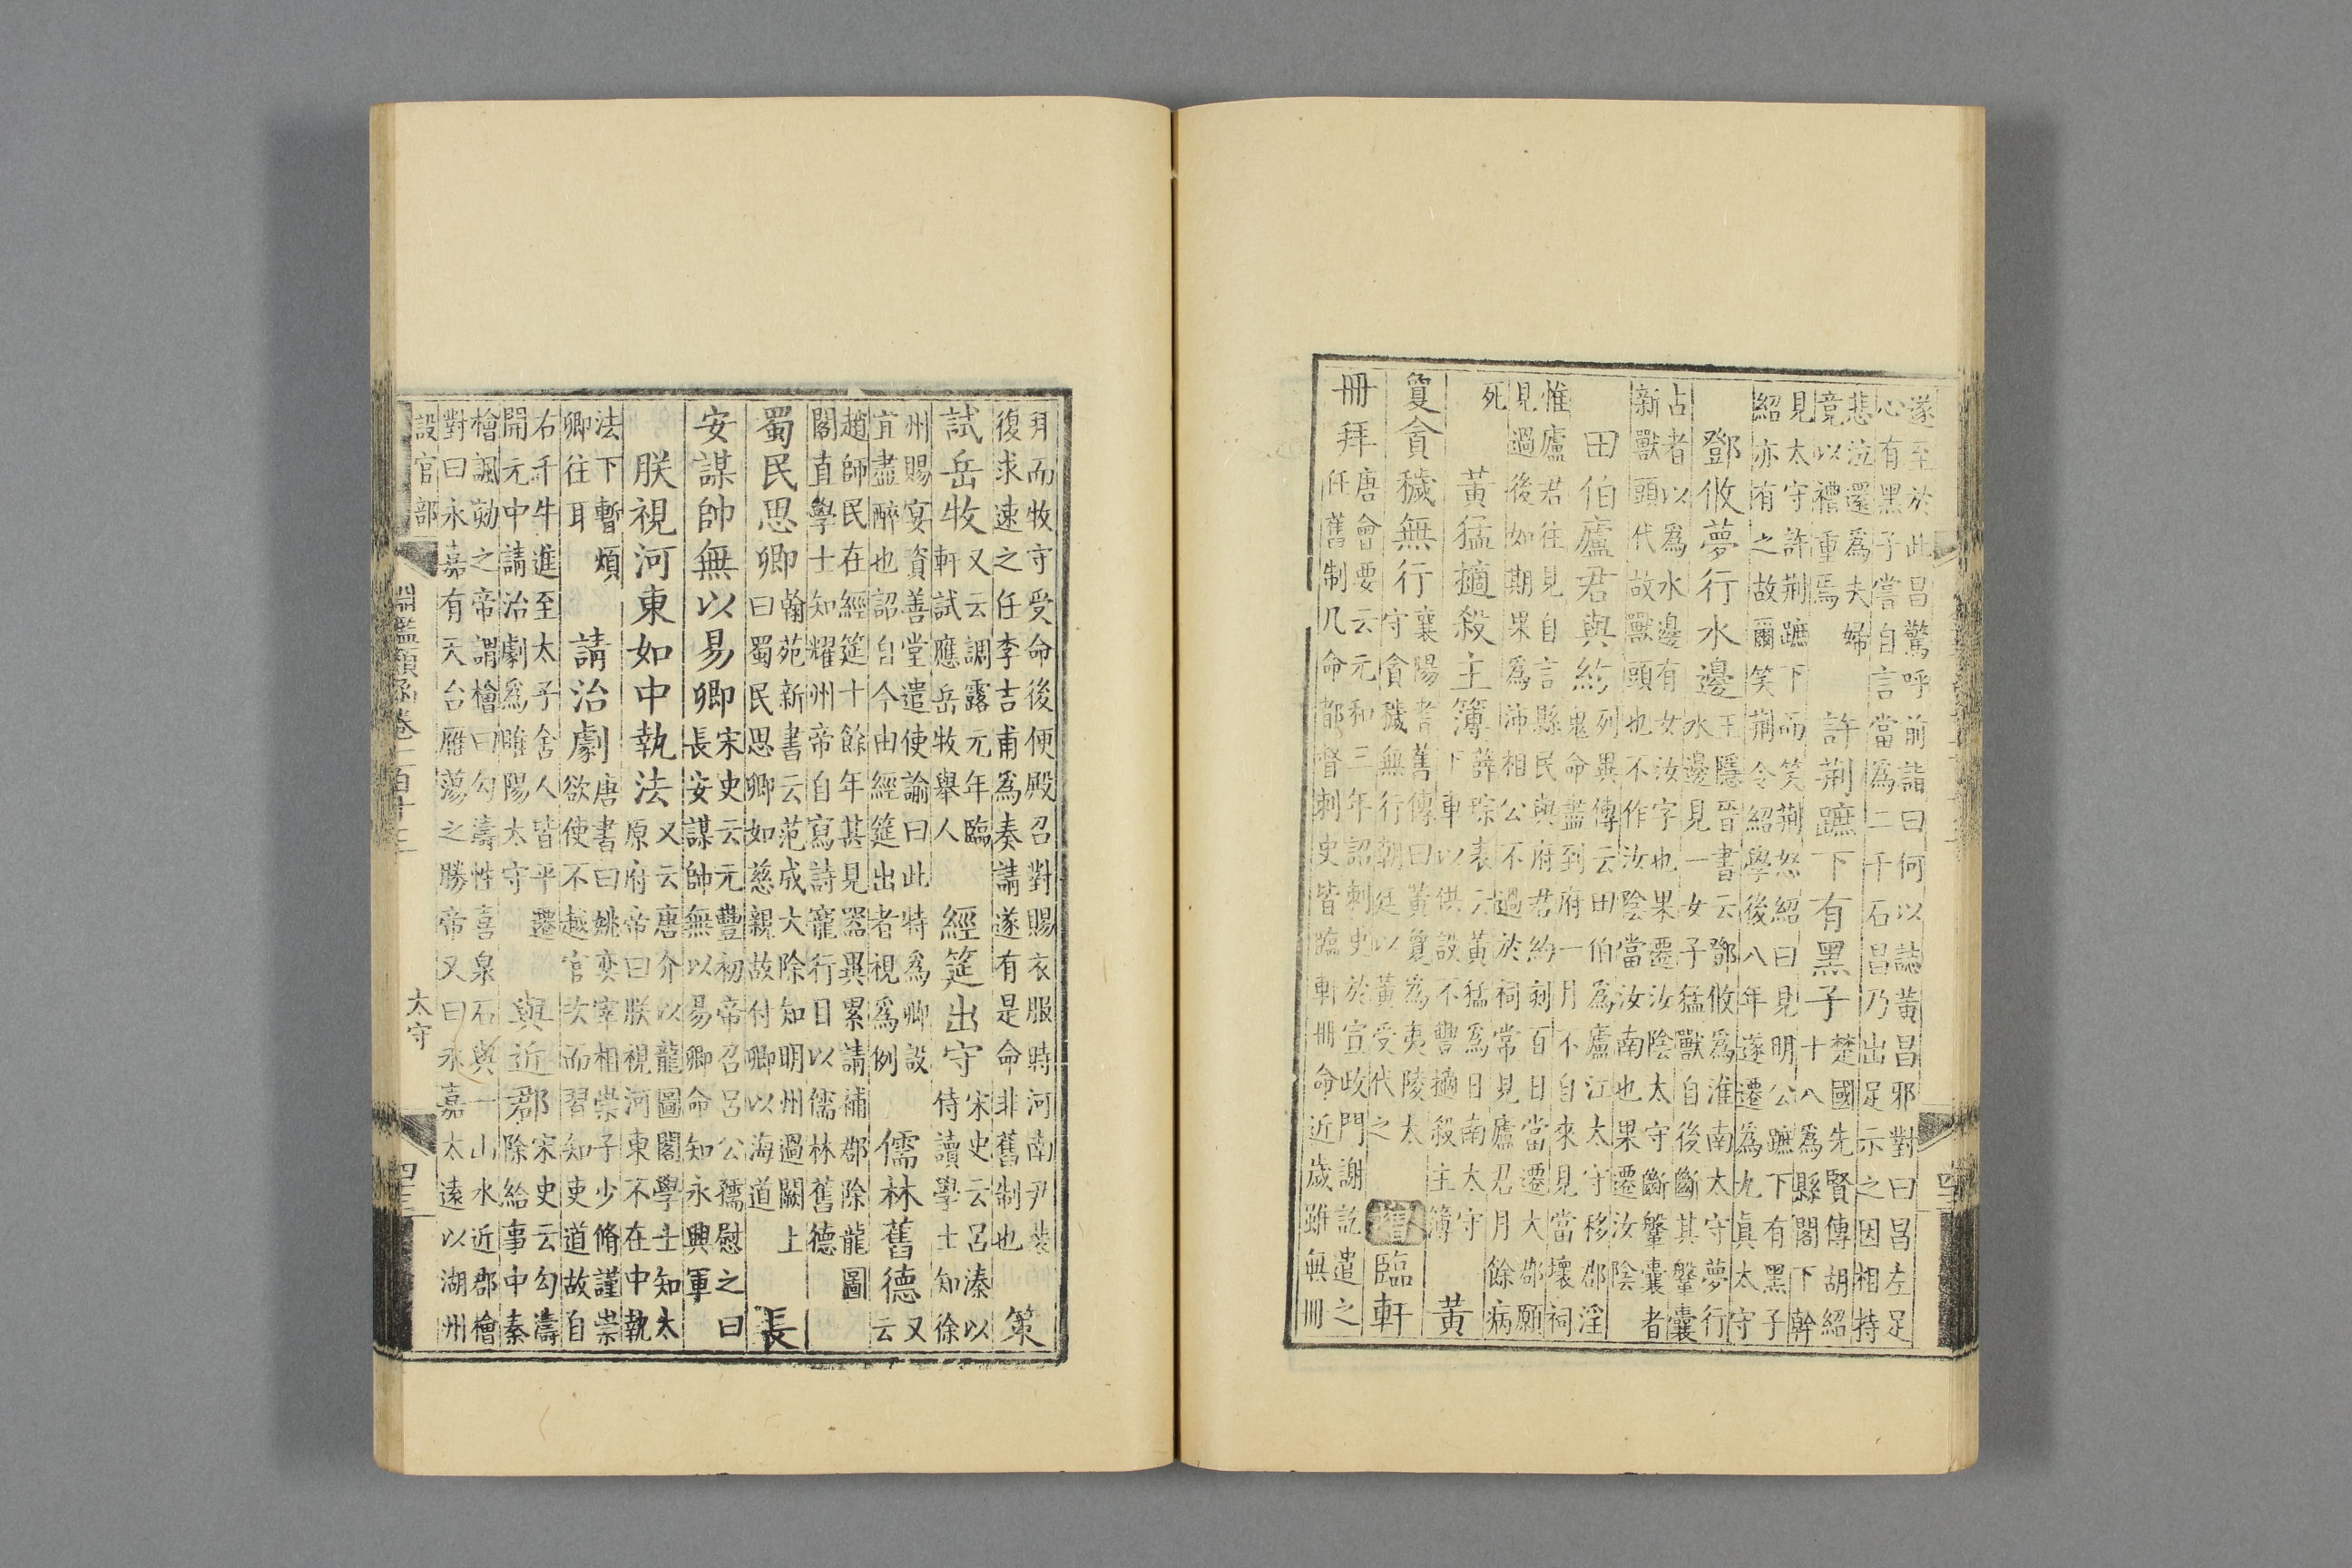 遂至於此昌驚呼前詣曰何以誌黃昌邪對曰昌左足
心有黑子嘗自言當爲二千石昌乃出足示之因相持
悲泣還爲夫婦
竟以禮重焉
許荆蹠下有黑子
楚國先賢傳胡紹
十八爲縣閣下幹
見太守許荆蹠下而笑荆怒紹曰見明公蹠下有黑子
紹亦有之故爾笑荆令紹學後八年遂遷爲九眞太守
鄧攸夢行水邊
王隱晉書云鄧攸爲淮南太守夢行
水邊見一女子猛獸自後斷其鞶囊
占者以爲水邊有女汝字也果遷汝陰太守斷鞶囊者
新獸頭代故獸頭也不作汝陰當汝南也果遷汝陰
田伯廬君與約
列異傳云田伯爲廬江太守移郡淫
鬼命盡到府一月不自來見當壞祠
惟廬君往見自言縣民與府君約刻百日當遷大郡願
見過後如期果爲沛相公不過於祠常見廬君月餘病
死
黃猛擿殺主簿
薛琮表云黃猛爲日南太守
下車以供設不豐擿殺主簿
黃
䕫貪穢無行
襄陽耆舊傳曰黃䕫爲夷陵太
守貪穢無行朝廷以黃受代之
增
臨軒
冊拜
唐會要云元和三年詔刺史於宣政門謝訖遣之
任舊制凡命都督刺史皆臨軒冊命近歲雖無冊
拜而牧守受命後便殿召對賜衣服時河南尹裴
復求速之任李吉甫爲奏請遂有是命非舊制也
策
試岳牧
又云調露元年臨
軒試應岳牧舉人
經筵出守
宋史云呂溱以
侍讀學士知徐
州賜宴資善堂遣使諭曰此特爲卿設
宜盡醉也詔自今由經筵出者視爲例
儒林舊德
又
云
趙師民在經筵十餘年甚見器異累請補郡除龍圖
閣直學士知耀州帝自寫詩寵行目以儒林舊德
蜀民思卿
翰苑新書云范成大除知明州過闕上
曰蜀民思卿如慈親故付卿以海道
長
安謀帥無以易卿
宋史云元豐初帝召呂公孺慰之曰
長安謀帥無以易卿命知永興軍
朕視河東如中執法
又云唐介以龍圖閣學士知太
原府帝曰朕視河東不在中執
法下暫煩
卿往耳
請治劇
唐書曰姚奕宰相崇子少脩謹崇
欲使不越官次而習知吏道故自
右千牛進至太子舍人皆平遷
開元中請治劇爲睢陽太守
與近郡
宋史云勾濤
除給事中秦
檜諷劾之帝謂檜曰勾濤性喜泉石與一山水近郡檜
對曰永嘉有天台雁蕩之勝帝又曰永嘉太遠以湖州
設官部
淵鑑類函卷一百十三
太守